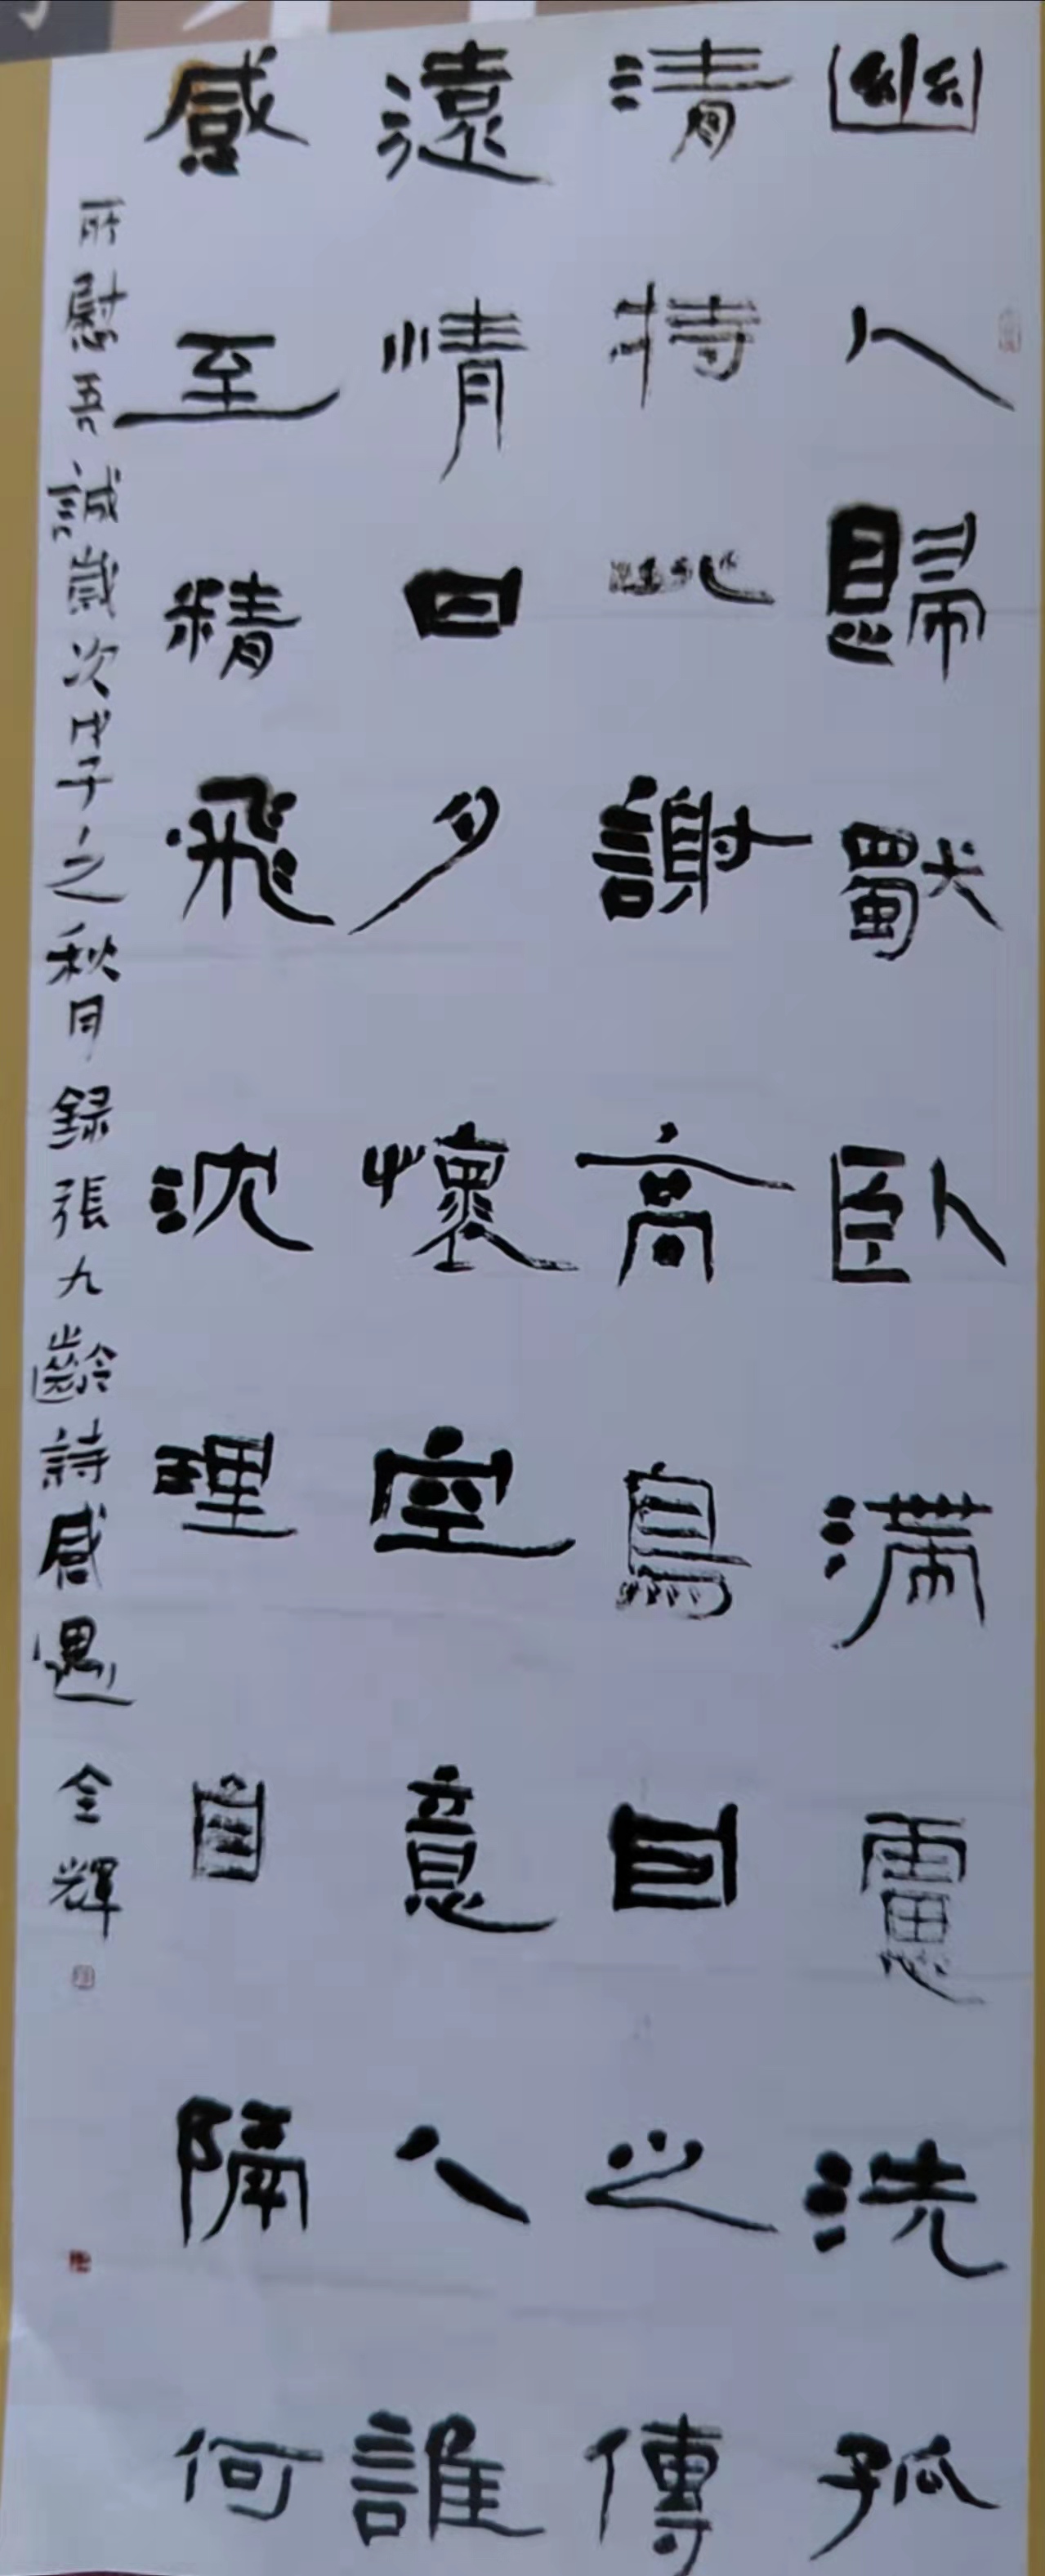 幽人歸獨臥滯慮洗孤
清持此謝高鳥因之傳
遠情日夕懷空意人誰
感至精飛沈理自隔何
所慰吾誠歲次戊子之秋月錄張九齡詩感遇 全輝